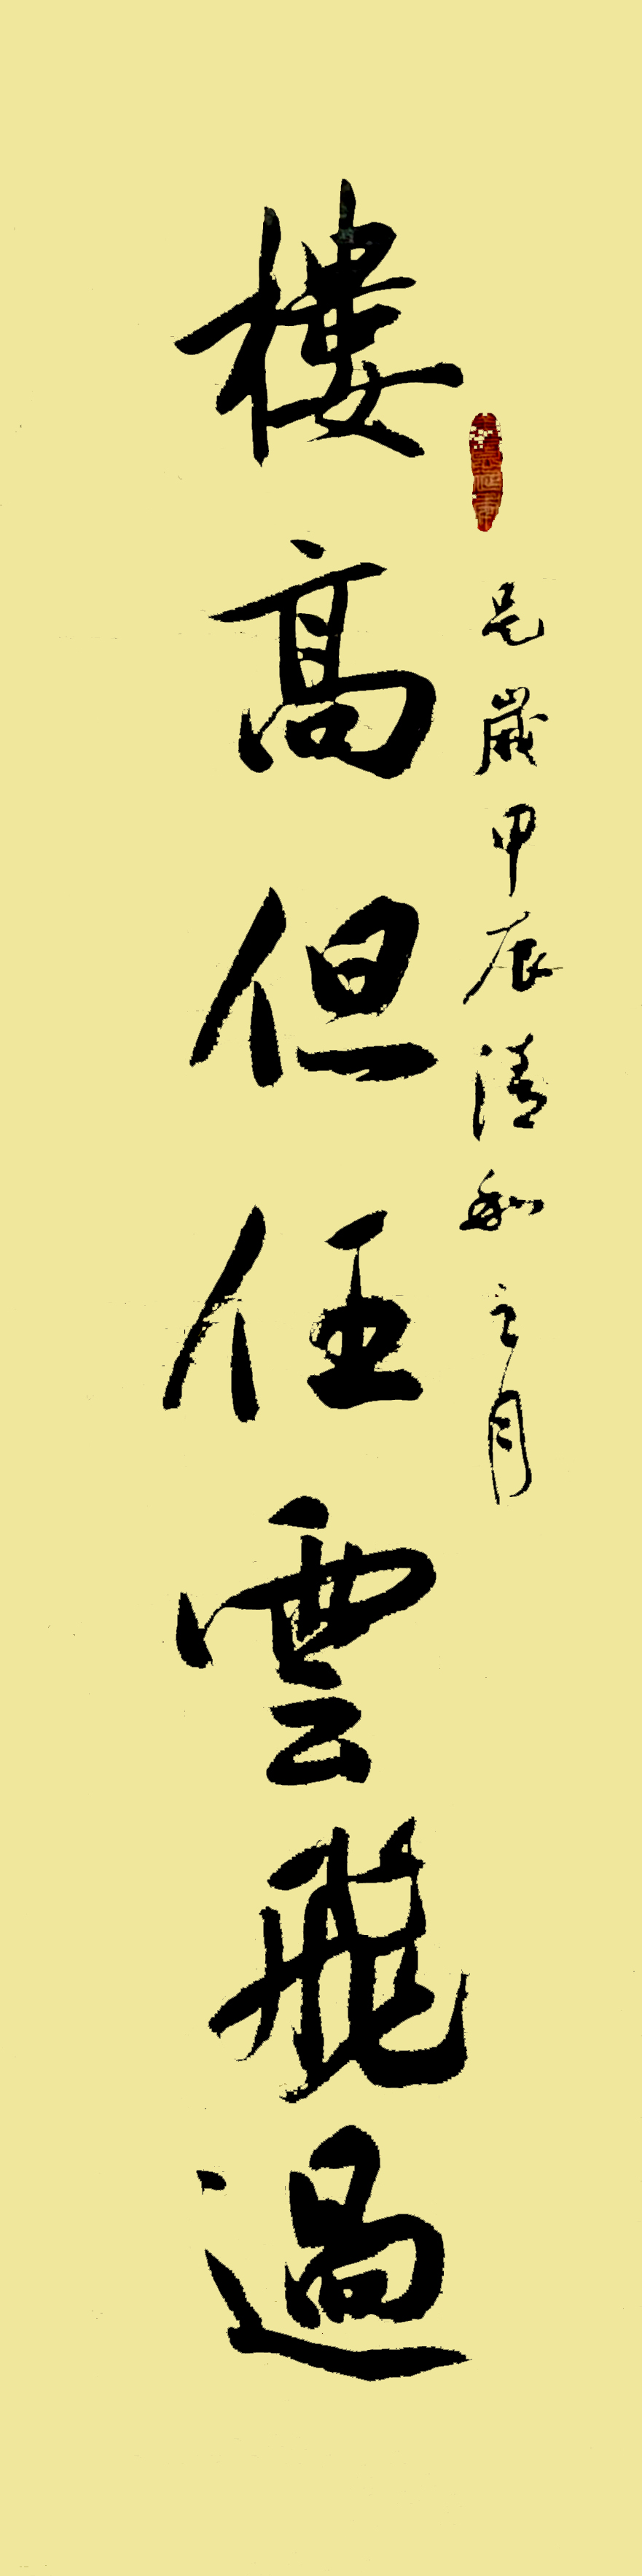 是歲甲辰清和之月
樓高但任雲飛過